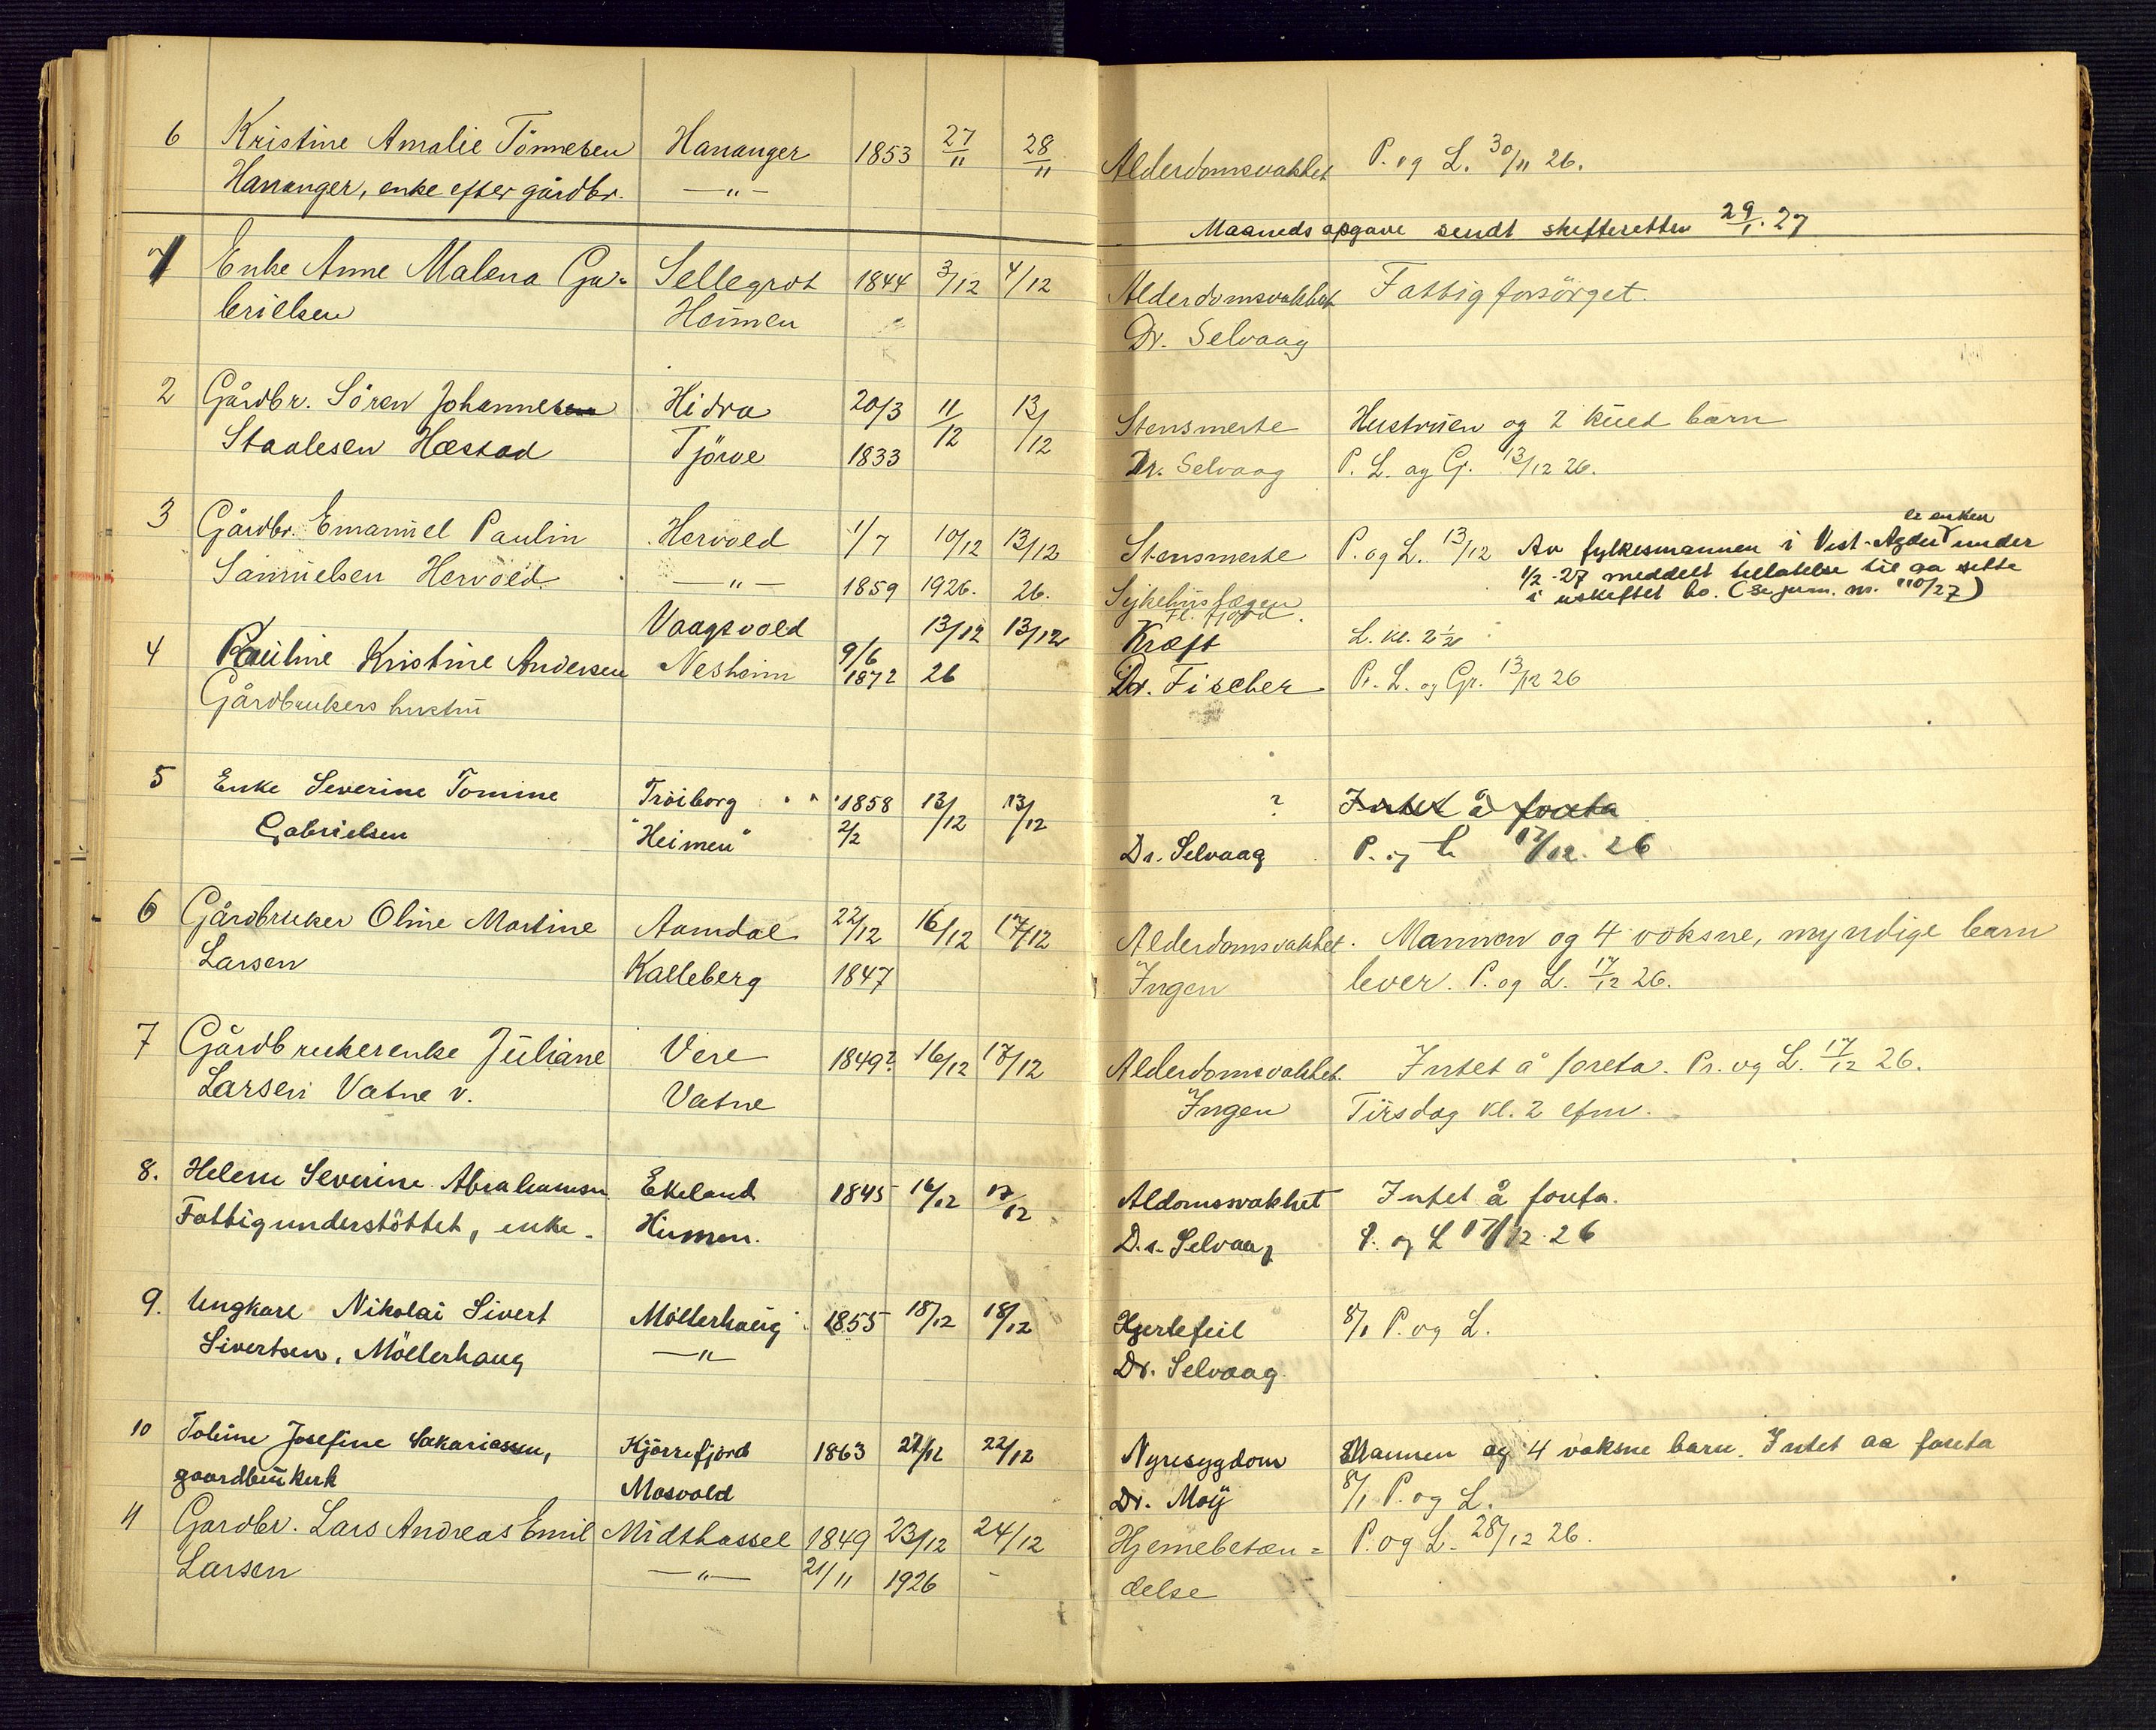 6 Kristine Amalie Tönnesen Hananger 1853 27/11 28/11 Alderdomsvakhet P. og L. 30/11 26.
Hananger, enke efter gårdbr. —"—
Maanedsopgave sendt skifteretten 29/1. 27
1 Enke Anne Malena Ga= Sellegrot 1844 3/12 4/12 Alderdomsvakhet Fattigforsörget.
brielsen Heimen Dr. Selvaag
2 Gårdbr. Sören Johannesen Hidra 20/3 11/12 13/12 Stensmerte Hustruen og 2 kuld barn
Staalesen Hæstad Tjörve 1833 Dr. Selvaag P. L. og G. 13/12 26.
er enken
3 Gårdbr. Emanuel Paulin Hervold 1/7 10/12 13/12 Stensmerte P. og L. 13/12 Av fylkesmannen i Vest-Agder under
Samuelsen Hervold —"— 1859 1926. 26. Sykehuslægen 1/2-27 meddelt tillatelse til aa sitte
Fl. fjord. i uskiftet bo. (Se jurn. nr. 110/27)
Vaagsvold 13/12 13/12 Kræft L. kl. 2 1/2
4 Pauline Kristine Andersen Nesheim 9/6 1872 26 Dr. Fischer Pr. L. og Gr. 13/12 26
Gårdbrukers hustru
5 Enke Severine Tomine Tröiborg 1858 13/12 13/12 ? Intet å foreta
Gabrielsen "Heimen" 2/2 Dr. Selvaag P. og L 17/12. 26
6 Gårdbruker Oline Martine Aamdal 22/12 16/12 17/12 Alderdomsvakhet. Mannen og 4 voksne, myndige barn
Larsen Kalleberg 1847 Ingen lever. P. og L. 17/12 26.
7 Gårdbrukerenke Juliane Vere 1849? 16/12 17/12 Alderdomsvakhet. Intet å foreta. Pr. og L. 17/12 26.
Larsen Vatne v. Vatne Ingen Tirsdag kl. 2 efm.
8. Helene Severine Abrahamsen Ekeland 1845 16/12 17/12 Aldomsvakhet Intet å foreta.
Fattigunderstöttet, enke. Heimen. Dr. Selvaag P. og L 17/12 26
9. Ungkare Nikolai Sivert Möllerhaug 1855 18/12 18/12 Hjertefeil 8/1 P. og L.
Sivertsen, Möllerhaug —"— Dr. Selvaag
10 Toline Josefine Sakariassen, Kjörrefjord 1863 22/12 22/12 Nyresygdom Mannen og 4 voksne barn. Intet aa foreta
gaardbrukerk Mosvold Dr. Moÿ 8/1 P. og L.
11 Gardbr. Lars Andreas Emil Midthassel 1849 23/12 24/12 Hjernebetæn= P. og L. 28/12 26.
Larsen —"— 21/11 1926 delse